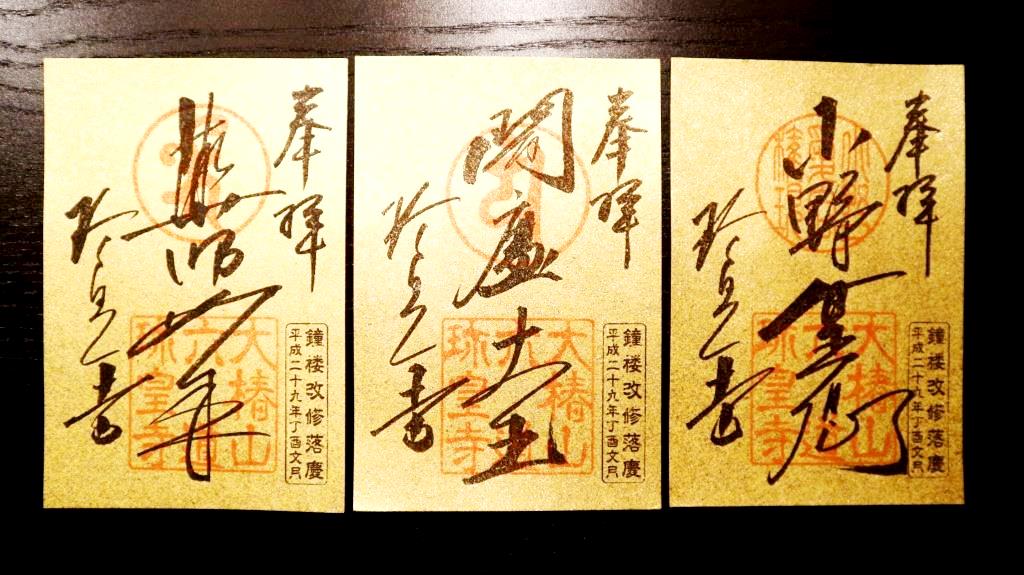 奉拝
薬師如来
大椿山
六道
珎皇寺
鐘楼改修落慶
平成二十九年丁酉文月
奉拝
閻魔大王
大椿山
六道
珎皇寺
鐘楼改修落慶
平成二十九年丁酉文月
奉拝
小野篁卿
大椿山
六道
珎皇寺
鐘楼改修落慶
平成二十九年丁酉文月